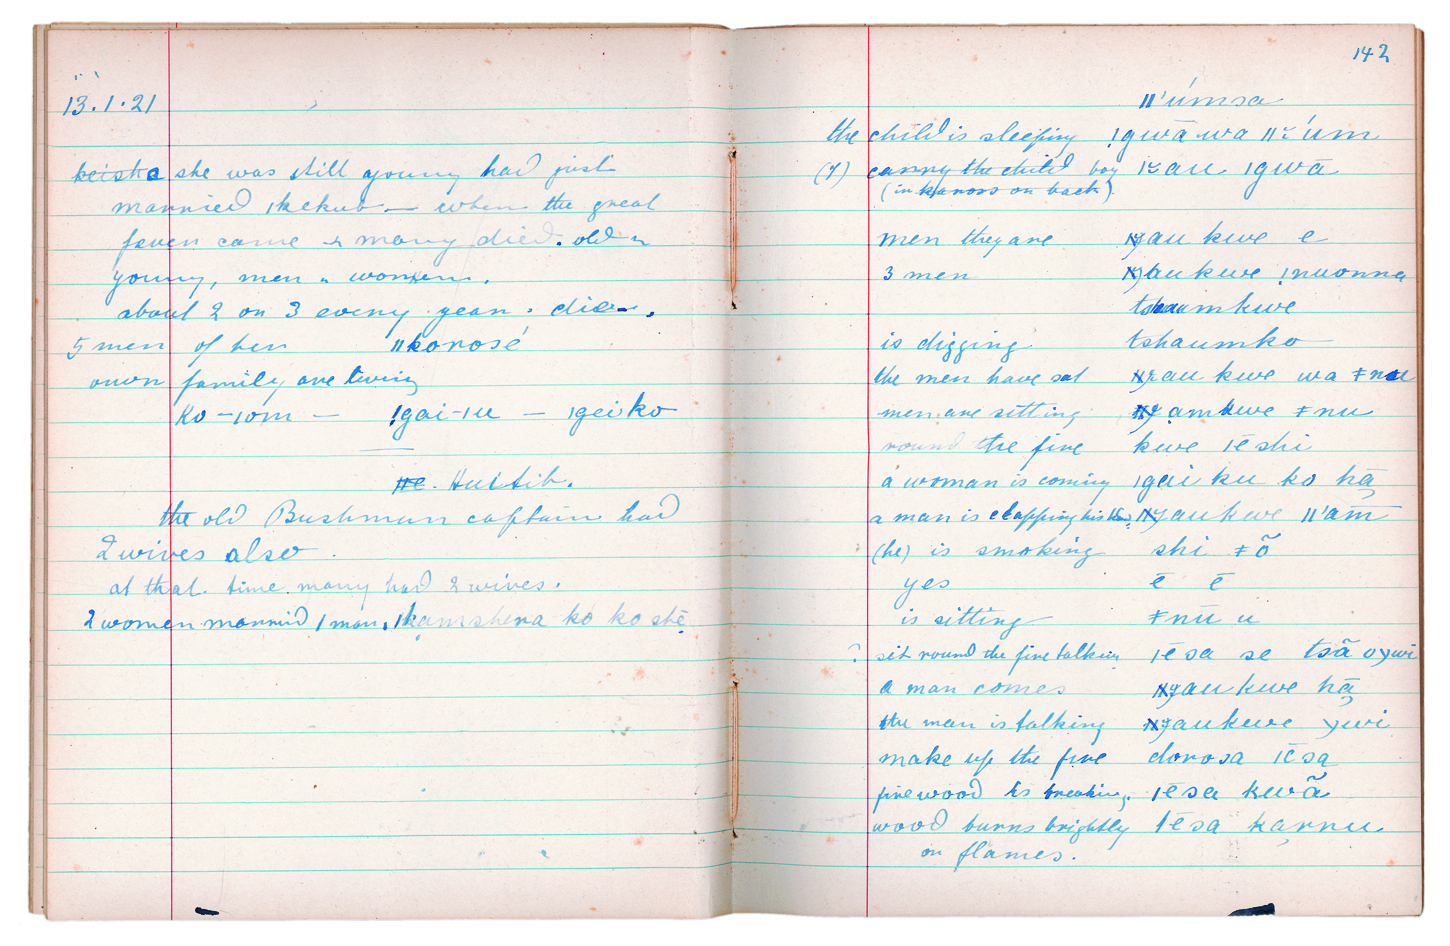 13.1.21
keisha she was still young had just
married ǀkekub — when the great
fever came & many died. old &
young, men & women.
about 2 or 3 every year. die.
5 men of her ǁkorosé
own family are living
Ko-ǀom — !gai-ǀu — ǀgeiko
Huitib.
the old Bushman captain had
2 wives also.
at that time many had 2 wives.
2 women married 1 man. ǀkamshera ko ko shē
142
ǁ'úmsa
the child is sleeping !gwā wa ǁ'úm
(7) carry the child boy ǀkau ǀgwā
(in kaross on back)
men they are au kwe e
3 men au kwe !nuonna
tshaumkwe
is digging tshaumko
the men have sat au kwe wa ǂnu
men are sitting amkwe ǂnu
round the fire kwe ǀē shi
a woman is coming ǀgai ku ko hā
a man is clapping his aukwe ǁ'am
(he) is smoking shi ǂõ
yes ē ē
is sitting ǂnū u
? sit round the fire talking ǀēsa se tsã
a man comes au kwe hā
the man is talking aukwe
make up the fire dorosa ǀēsa
firewood is breaking. ǀēsa kwã
wood burns brightly ǀēsa karnu
or flames.